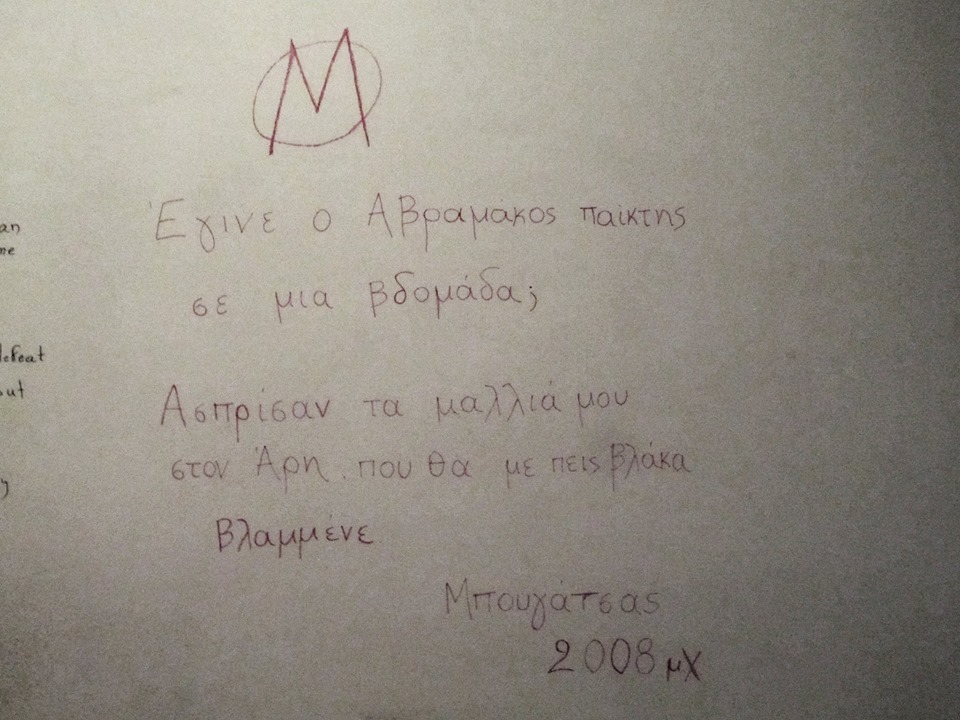 M
an
me
defeat
out
y
Έγινε ο Αβραμάκος παίκτης
σε μια βδομάδα;
Ασπρίσαν τα μαλλιά μου
στον Άρη. που θα με πεις βλάκα
Βλαμμένε
Μπουγάτσας
2008 μχ